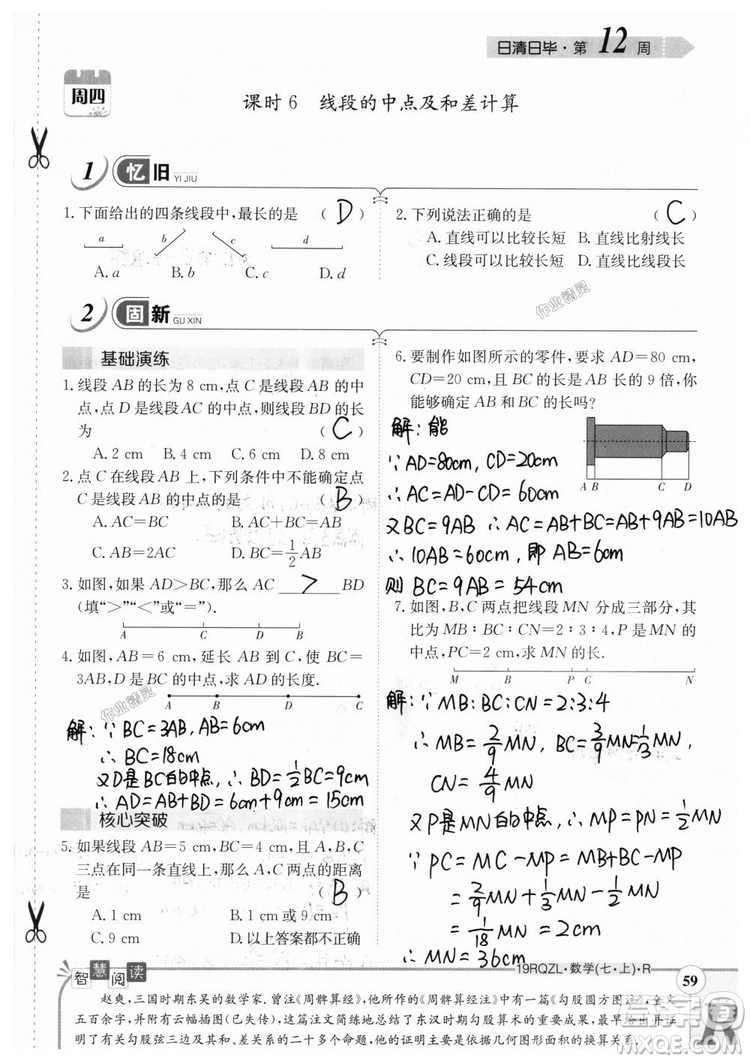 日清日毕·第12周
周四
课时6 线段的中点及和差计算
1 忆旧 YI JIU
1.下面给出的四条线段中,最长的是 ( D )
a b c d
A.a B.b C.c D.d
2.下列说法正确的是 ( C )
A.直线可以比较长短 B.直线比射线长
C.线段可以比较长短 D.直线比线段长
2 固新 GU XIN
基础演练
1.线段AB的长为8 cm,点C是线段AB的中
点,点D是线段AC的中点,则线段BD的长
为 ( C )
A.2 cm B.4 cm C.6 cm D.8 cm
2.点C在线段AB上,下列条件中不能确定点
C是线段AB的中点的是 ( B )
A.AC=BC B.AC+BC=AB
C.AB=2AC D.BC=1/2AB
3.如图,如果AD>BC,那么AC > BD
(填“>”“<”或“=”).
A C D B
4.如图,AB=6 cm,延长AB到C,使BC=
3AB,D是BC的中点,求AD的长度.
A B D C
解:∵BC=3AB,AB=6cm
∴BC=18cm
又D是BC的中点,∴BD=1/2BC=9cm
∴AD=AB+BD=6cm+9cm=15cm
核心突破
5.如果线段AB=5 cm,BC=4 cm,且A,B,C
三点在同一条直线上,那么A,C两点的距离
是 ( B )
A.1 cm B.1 cm或9 cm
C.9 cm D.以上答案都不正确
6.要制作如图所示的零件,要求AD=80 cm,
CD=20 cm,且BC的长是AB长的9倍,你
能够确定AB和BC的长吗?
A B C D
解:能
∵AD=80cm,CD=20cm
∴AC=AD-CD=60cm
又BC=9AB ∴AC=AB+BC=AB+9AB=10AB
∴10AB=60cm,即AB=6cm
则BC=9AB=54cm
7.如图,B,C两点把线段MN分成三部分,其
比为MB∶BC∶CN=2∶3∶4,P是MN的
中点,PC=2 cm,求MN的长.
M B P C N
解:∵MB:BC:CN=2:3:4
∴MB=2/9MN,BC=3/9MN=1/3MN
CN=4/9MN
又P是MN的中点,∴MP=PN=1/2MN
∵PC=MC-MP=MB+BC-MP
=2/9MN+1/3MN-1/2MN
=1/18MN=2cm
∴MN=36cm
19RQZL·数学(七·上)·R
59
智慧阅读
赵爽,三国时期东吴的数学家.曾注《周髀算经》,他所作的《周髀算经注》中有一篇《勾股圆方图注》,全文
五百余字,并附有云幅插图(已失传),这篇注文简练地总结了东汉时期勾股算术的重要成果,最早给出并证
明了有关勾股弦三边及其和、差关系的二十多个命题,他的证明主要是依据几何图形面积的换算关系.
作业精灵
作业精灵